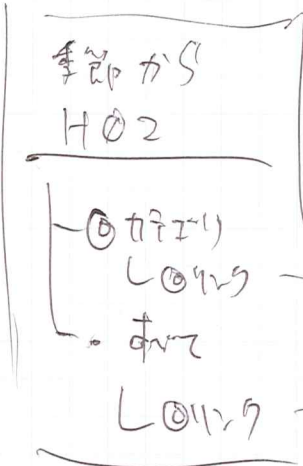 季節から
H02
カテゴリ
リンク
すべて
リンク